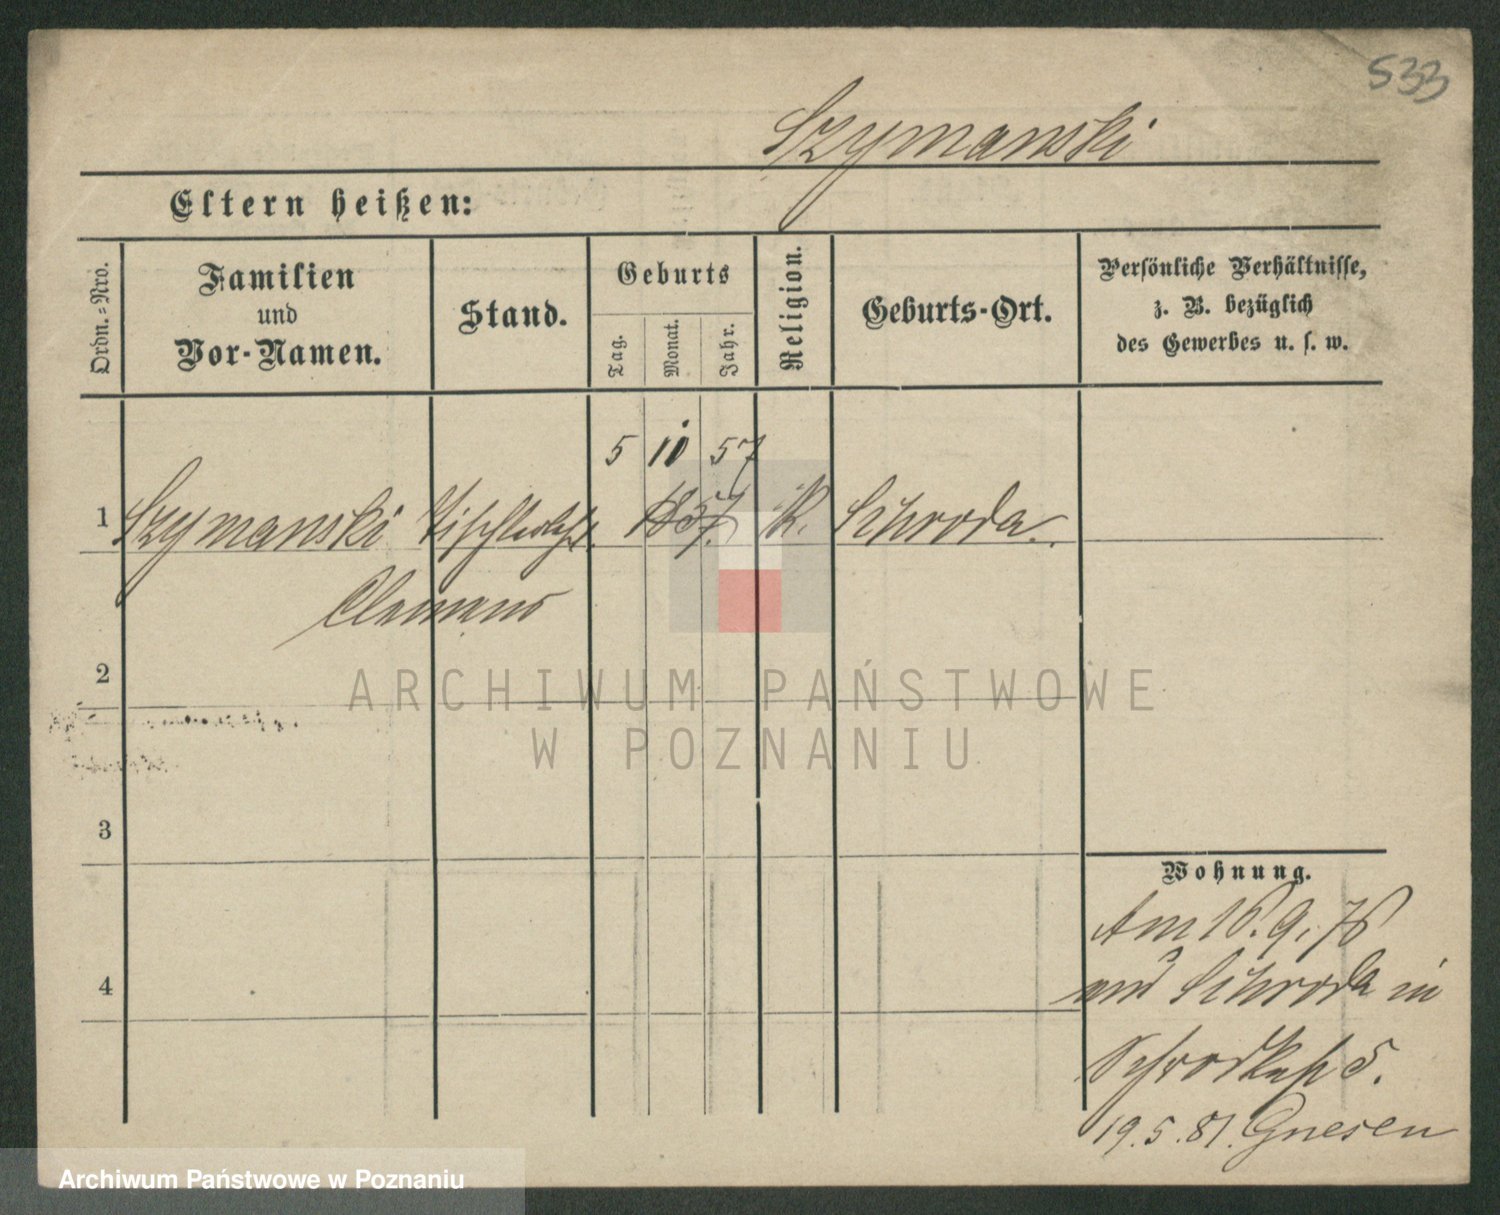 533
Szymanski
Eltern heißen:
Ordn.-Nro.
Familien
und
Vor-Namen.
Stand.
Geburts
Tag.
Monat.
Jahr.
Religion.
Geburts-Ort.
Persönliche Verhältnisse,
z. B. bezüglich
des Gewerbes u. s. w.
5 10 57
1 Szymanski 1857. K. Schroda.
Clemens
2
3
4
Wohnung.
Am 16.9.76
aus Schroda in
5.
19.5.81. Gnesen
ARCHIWUM PAŃSTWOWE
W POZNANIU
Archiwum Państwowe w Poznaniu